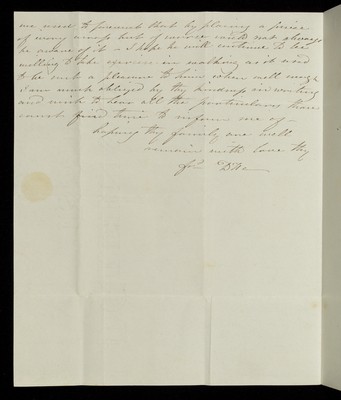 we used to prevent that by placing a piece
of many wraps but of course could not always
be aware of it - I hope he will continue to be
willing to take exercise in walking as it used
to be such a pleasure to him when well enough
I am much obliged by thy kindness in writing
and wish to hear all the particulars thou
canst find time to inform me of -
hoping thy family are well
remain with love thy
frd